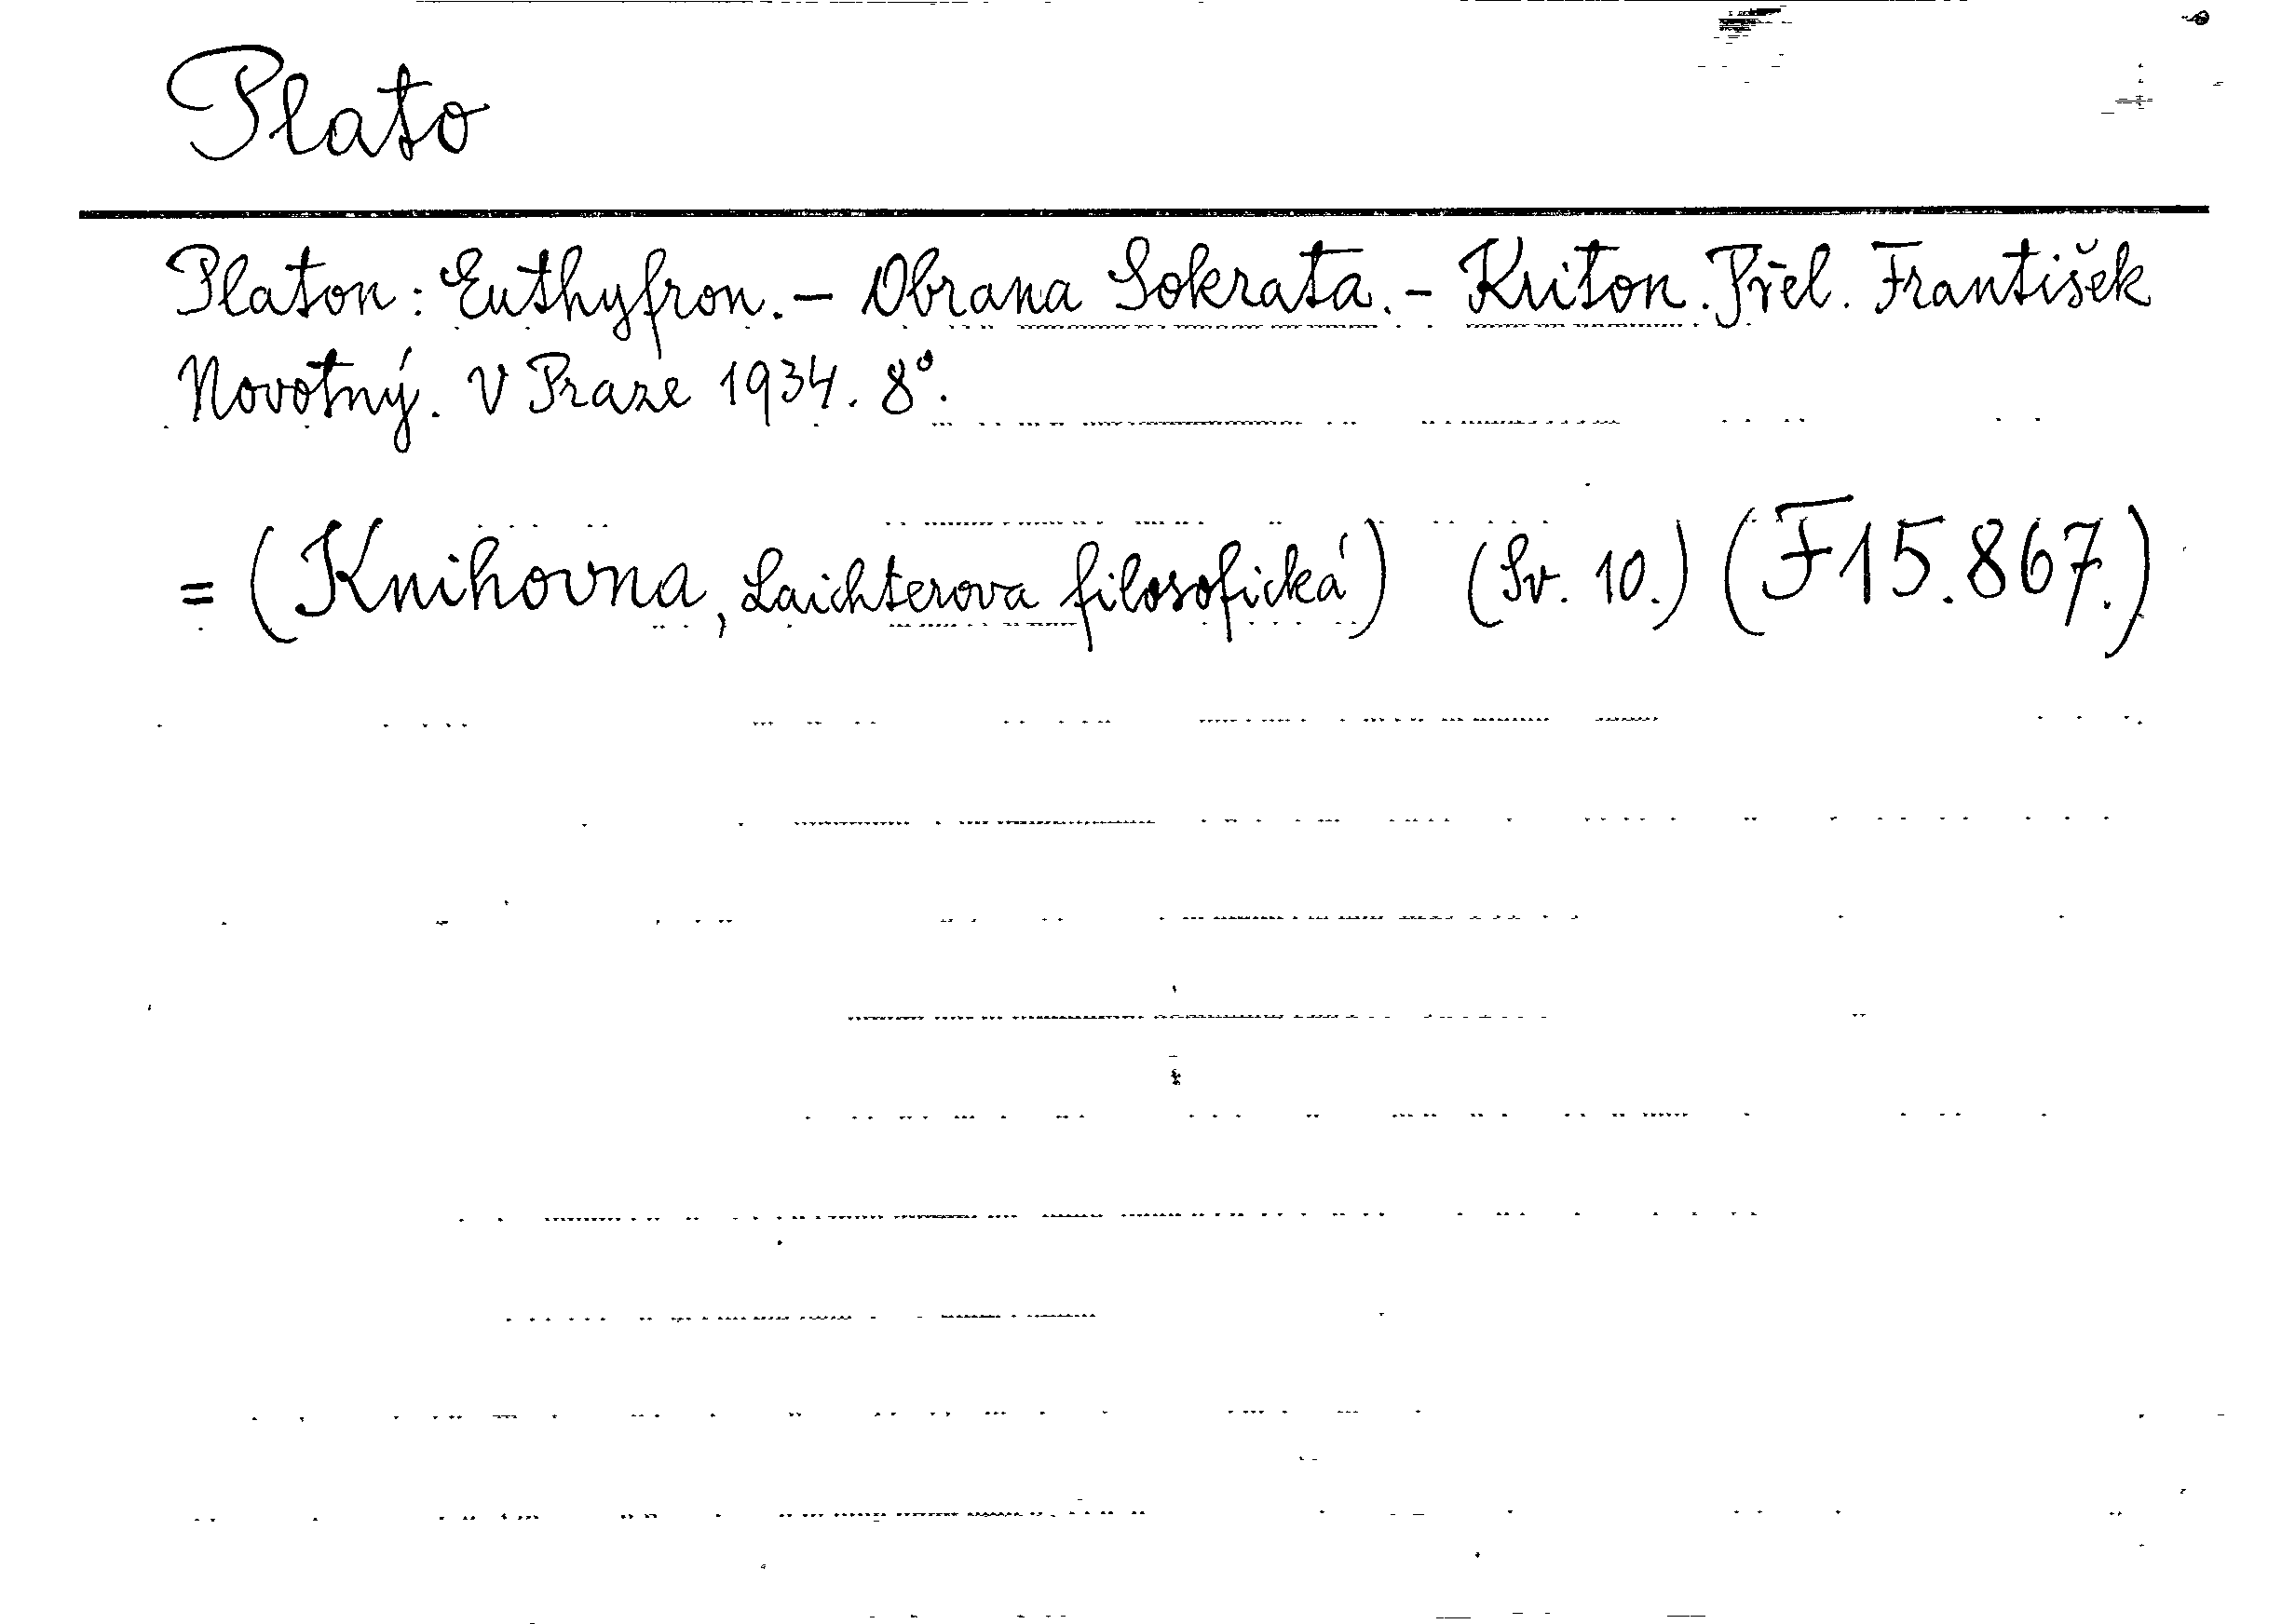 Plato
Platon: Euthyfron. – Obrana Sokrata. – Kriton. Přel. František
Novotný. V Praze 1934. 8°.
= (Knihovna, Laichterova filosofická) (Sv. 10.) (F15.867.)